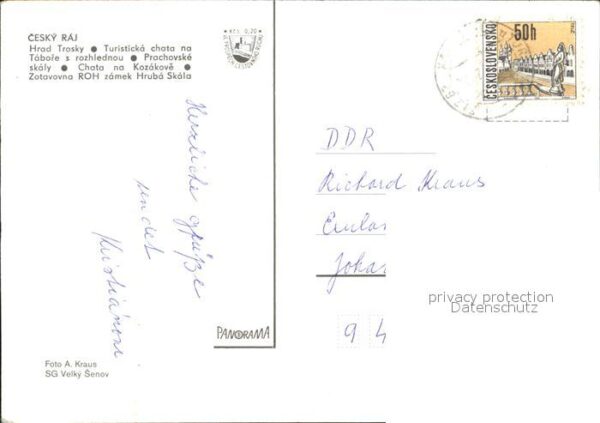 ČESKÝ RÁJ
Hrad Trosky ● Turistická chata na
Táboře s rozhlednou ● Prachovské
skály ● Chata na Kozákově ●
Zotavovna ROH zámek Hrubá Skála
Kčs 0,20
50h
ČESKOSLOVENSKO
Herzliche Grüße
sendet
DDR
Richard Kraus
Joha
94
privacy protection
Datenschutz
PANORAMA
Foto A. Kraus
SG Velký Šenov